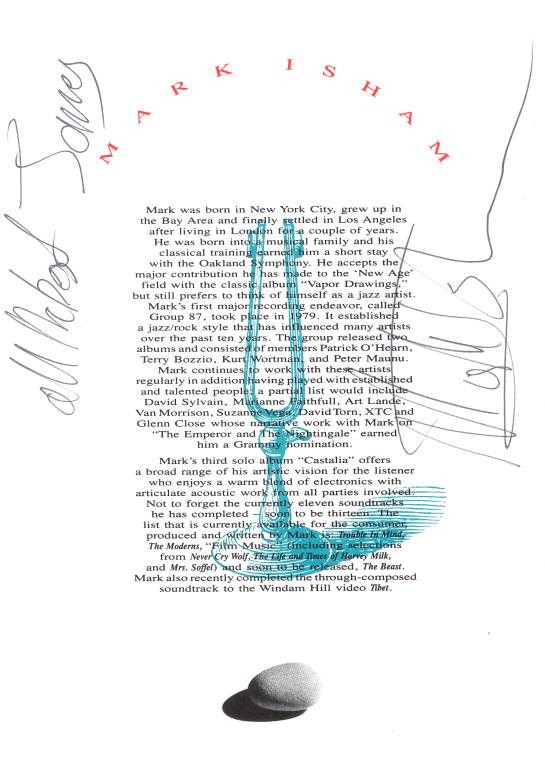 MARK ISHAM
Mark was born in New York City, grew up in
the Bay Area and finally settled in Los Angeles
after living in London for a couple of years.
He was born into a musical family and his
classical training earned him a short stay
with the Oakland Symphony. He accepts the
major contribution he has made to the ‘New Age’
field with the classic album “Vapor Drawings,”
but still prefers to think of himself as a jazz artist.
Mark’s first major recording endeavor, called
Group 87, took place in 1979. It established
a jazz/rock style that has influenced many artists
over the past ten years. The group released two
albums and consisted of members Patrick O’Hearn,
Terry Bozzio, Kurt Wortman, and Peter Maunu.
Mark continues to work with these artists
regularly in addition having played with established
and talented people; a partial list would include
David Sylvain, Marianne Faithfull, Art Lande,
Van Morrison, Suzanne Vega, David Torn, XTC and
Glenn Close whose narrative work with Mark on
“The Emperor and The Nightingale” earned
him a Grammy nomination.
Mark’s third solo album “Castalia” offers
a broad range of his artistic vision for the listener
who enjoys a warm blend of electronics with
articulate acoustic work from all parties involved.
Not to forget the currently eleven soundtracks
he has completed – soon to be thirteen. The
list that is currently available for the consumer,
produced and written by Mark is: Trouble In Mind,
The Moderns, “Film Music” (including selections
from Never Cry Wolf, The Life and Times of Harvey Milk,
and Mrs. Soffel) and soon to be released, The Beast.
Mark also recently completed the through-composed
soundtrack to the Windam Hill video Tibet.